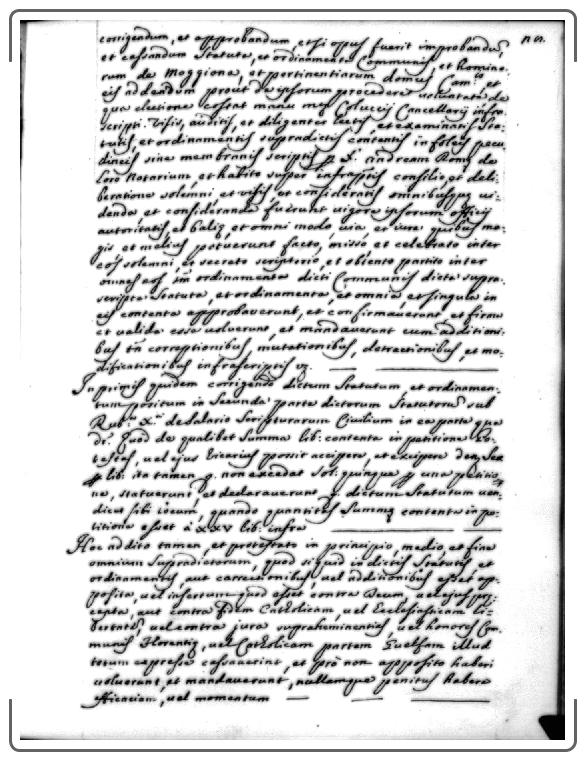 corrigendum, et approbandum, et si opus fuerit improbandum,
et cassandum Statuta, et ordinamenta Communis et homino:
rum de Moggiona, et pertinentiarum domus Cam: et
eis addendum prout de ipsorum procedere voluntate de
qua electione constat manu mei Coluccij Cancellarij infra:
scripti. Visis, auditis, et diligenter lectis, et examinatis Sta:
tutis, et ordinamentis supradictis contentis in foleis pecu
dineis sine membranis scriptis p S. Andream Romj de
Loro Notarium et habito super infrasptis consilio, et deli:
beratione solemni et visis, et consideratis omnibusque vi:
dendis et considerandis fuerunt vigore ipsorum officij
autoritatis, et baliæ, et omni modo, via, et iure quibus ma:
gis et melius potuerunt facto, misso et celebrato inter
eos solemni, et secreto scruptinio, et obtento partito inter
omnes eos tñ ordinamenta dicti Communis dicta supra:
scripta Statuta, et ordinamenta, et omnia et singula in
eis contenta approbaverunt, et confirmaverunt, et firma
et valida esse voluerunt, et mandaverunt cum additioni:
bus tñ correptionibus, mutationibus, detractionibus, et mo:
dificationibus infrascriptis vz.
In primis quidem corrigendo dictum Statutum et ordinamen:
tum positum in Secunda parte dictorum Statutorum sub
Rub. X. de Salario Scripturarum Civilium in ea parte qua
dr. Quod de qualibet Summa lib: contenta in petitione Po:
testas, vel ejus Vicarius possit accipere, et excipere den. Sex
p lib: ita tamen q. non excedat sol: quinque p una petitio:
ne, statuerunt, et declaraverunt, q. dictum Statutum ven:
dicet sibi locum, quando quantitas Summæ contenta in pe:
titione esset à XXV lib: infra
Hoc addito tamen, et protestato in principio, medio, et fine
omnium Supradictorum, quod si quid in dictis Statutis, et
ordinamentis, aut correctionibus, vel additionibus esset ap:
posita, vel insertum quod esset contra Deum, vel ejus prę:
cepta, aut contra fidem Catholicam, vel Ecclesiasticam li:
bertatẽ, vel contra jura supraheminentiæ, vel honoris Com:
munis Florentiæ, vel Catholicam partem Guelfam illud
totum expresse cassaverunt, et pro non apposito haberi
voluerunt, et mandaverunt, nullamque penitus habere
efficaciam, vel momentum